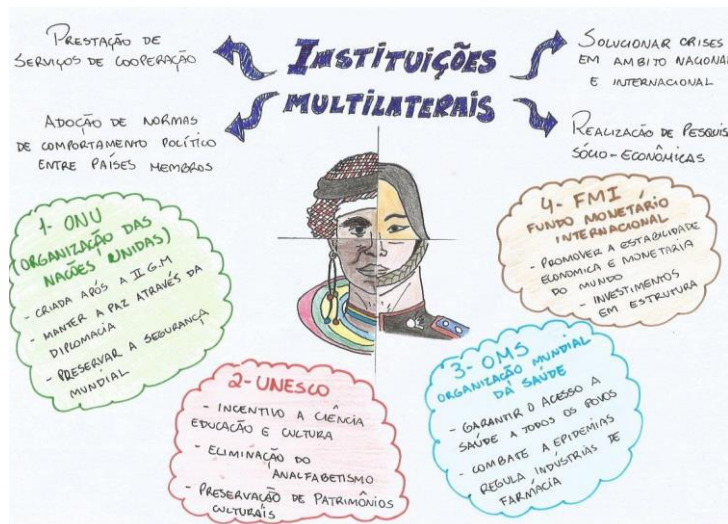 INSTITUIÇÕES
MULTILATERAIS
PRESTAÇÃO DE
SERVIÇOS DE COOPERAÇÃO
ADOÇÃO DE NORMAS
DE COMPORTAMENTO POLÍTICO
ENTRE PAÍSES MEMBROS
SOLUCIONAR CRISES
EM AMBITO NACIONAL
E INTERNACIONAL
REALIZAÇÃO DE PESQUIS
SÓCIO-ECONÔMICAS
1- ONU
(ORGANIZAÇÃO DAS
NAÇÕES UNIDAS)
- CRIADA APÓS A II G.M
- MANTER A PAZ ATRAVÉS DA
DIPLOMACIA
- PRESERVAR A SEGURANÇA
MUNDIAL
2- UNESCO
- INCENTIVO A CIÊNCIA
EDUCAÇÃO E CULTURA
- ELIMINAÇÃO DO
ANALFABETISMO
- PRESERVAÇÃO DE PATRIMÔNIOS
CULTURAIS
3- OMS
ORGANIZAÇÃO MUNDIAL
DÁ SAÚDE
- GARANTIR O ACESSO A
SAÚDE A TODOS OS POVOS
- COMBATE A EPIDEMIAS
REGULA INDÚSTRIAS DE
FARMÁCIA
4- FMI
FUNDO MONETÁRIO
INTERNACIONAL
- PROMOVER A ESTABILIDADE
ECONOMICA E MONETARIA
DO MUNDO
- INVESTIMENTOS
EM ESTRUTURA